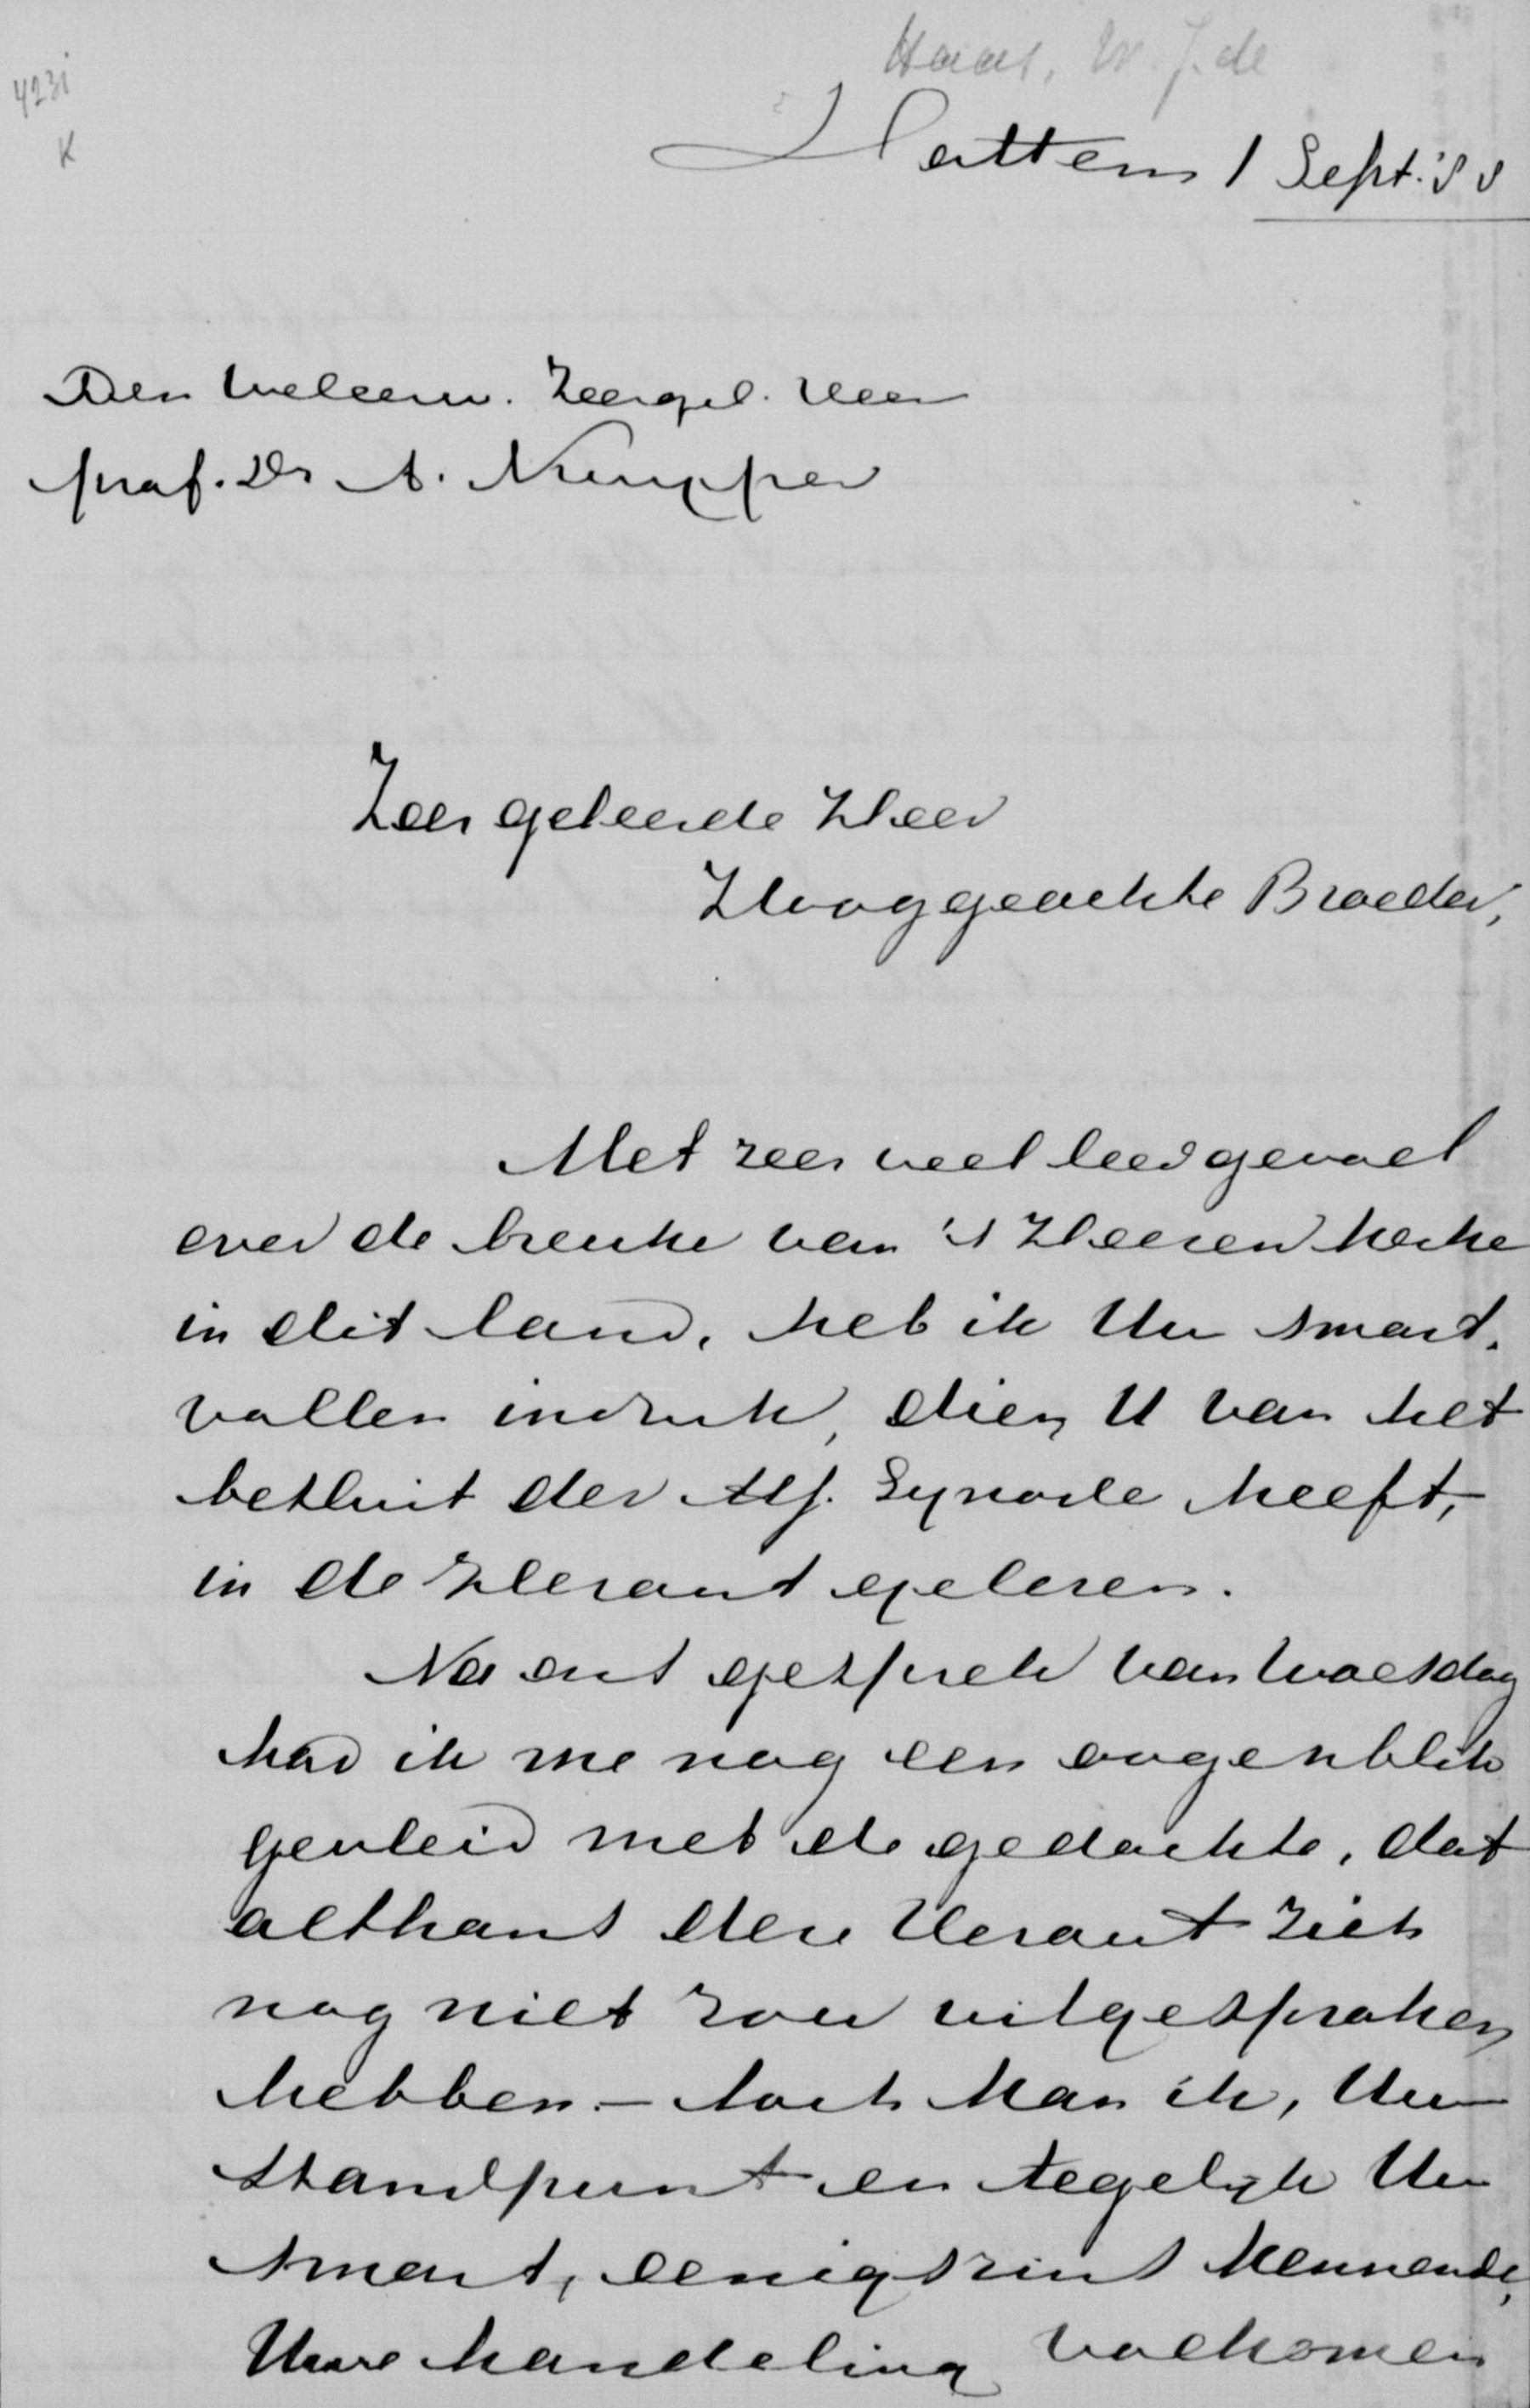 Haas, W. J. de
4231
K
Hattem 1 Sept. '88
Den Weleerw. Zeergel. Heer
prof. Dr A. Kuyper
Zeer geleerde Heer
Hooggeachte Broeder,
Met zeer veel leedgevoel
over de breuke van 's Heeren kerke
in dit land, heb ik Uw smart-
vollen indruk, dien U van het
besluit der Alg. Synode heeft,
in de Heraut gelezen.
Na ons gesprek van Woensdag
had ik me nog een oogenblik
gevleid met de gedachte, dat
althans den Heraut zich
nog niet zou uitgesproken
hebben. – Toch kan ik, Uw
standpunt en tegelijk Uw
smart, eenigszins kennende,
Uwe handeling volkomen